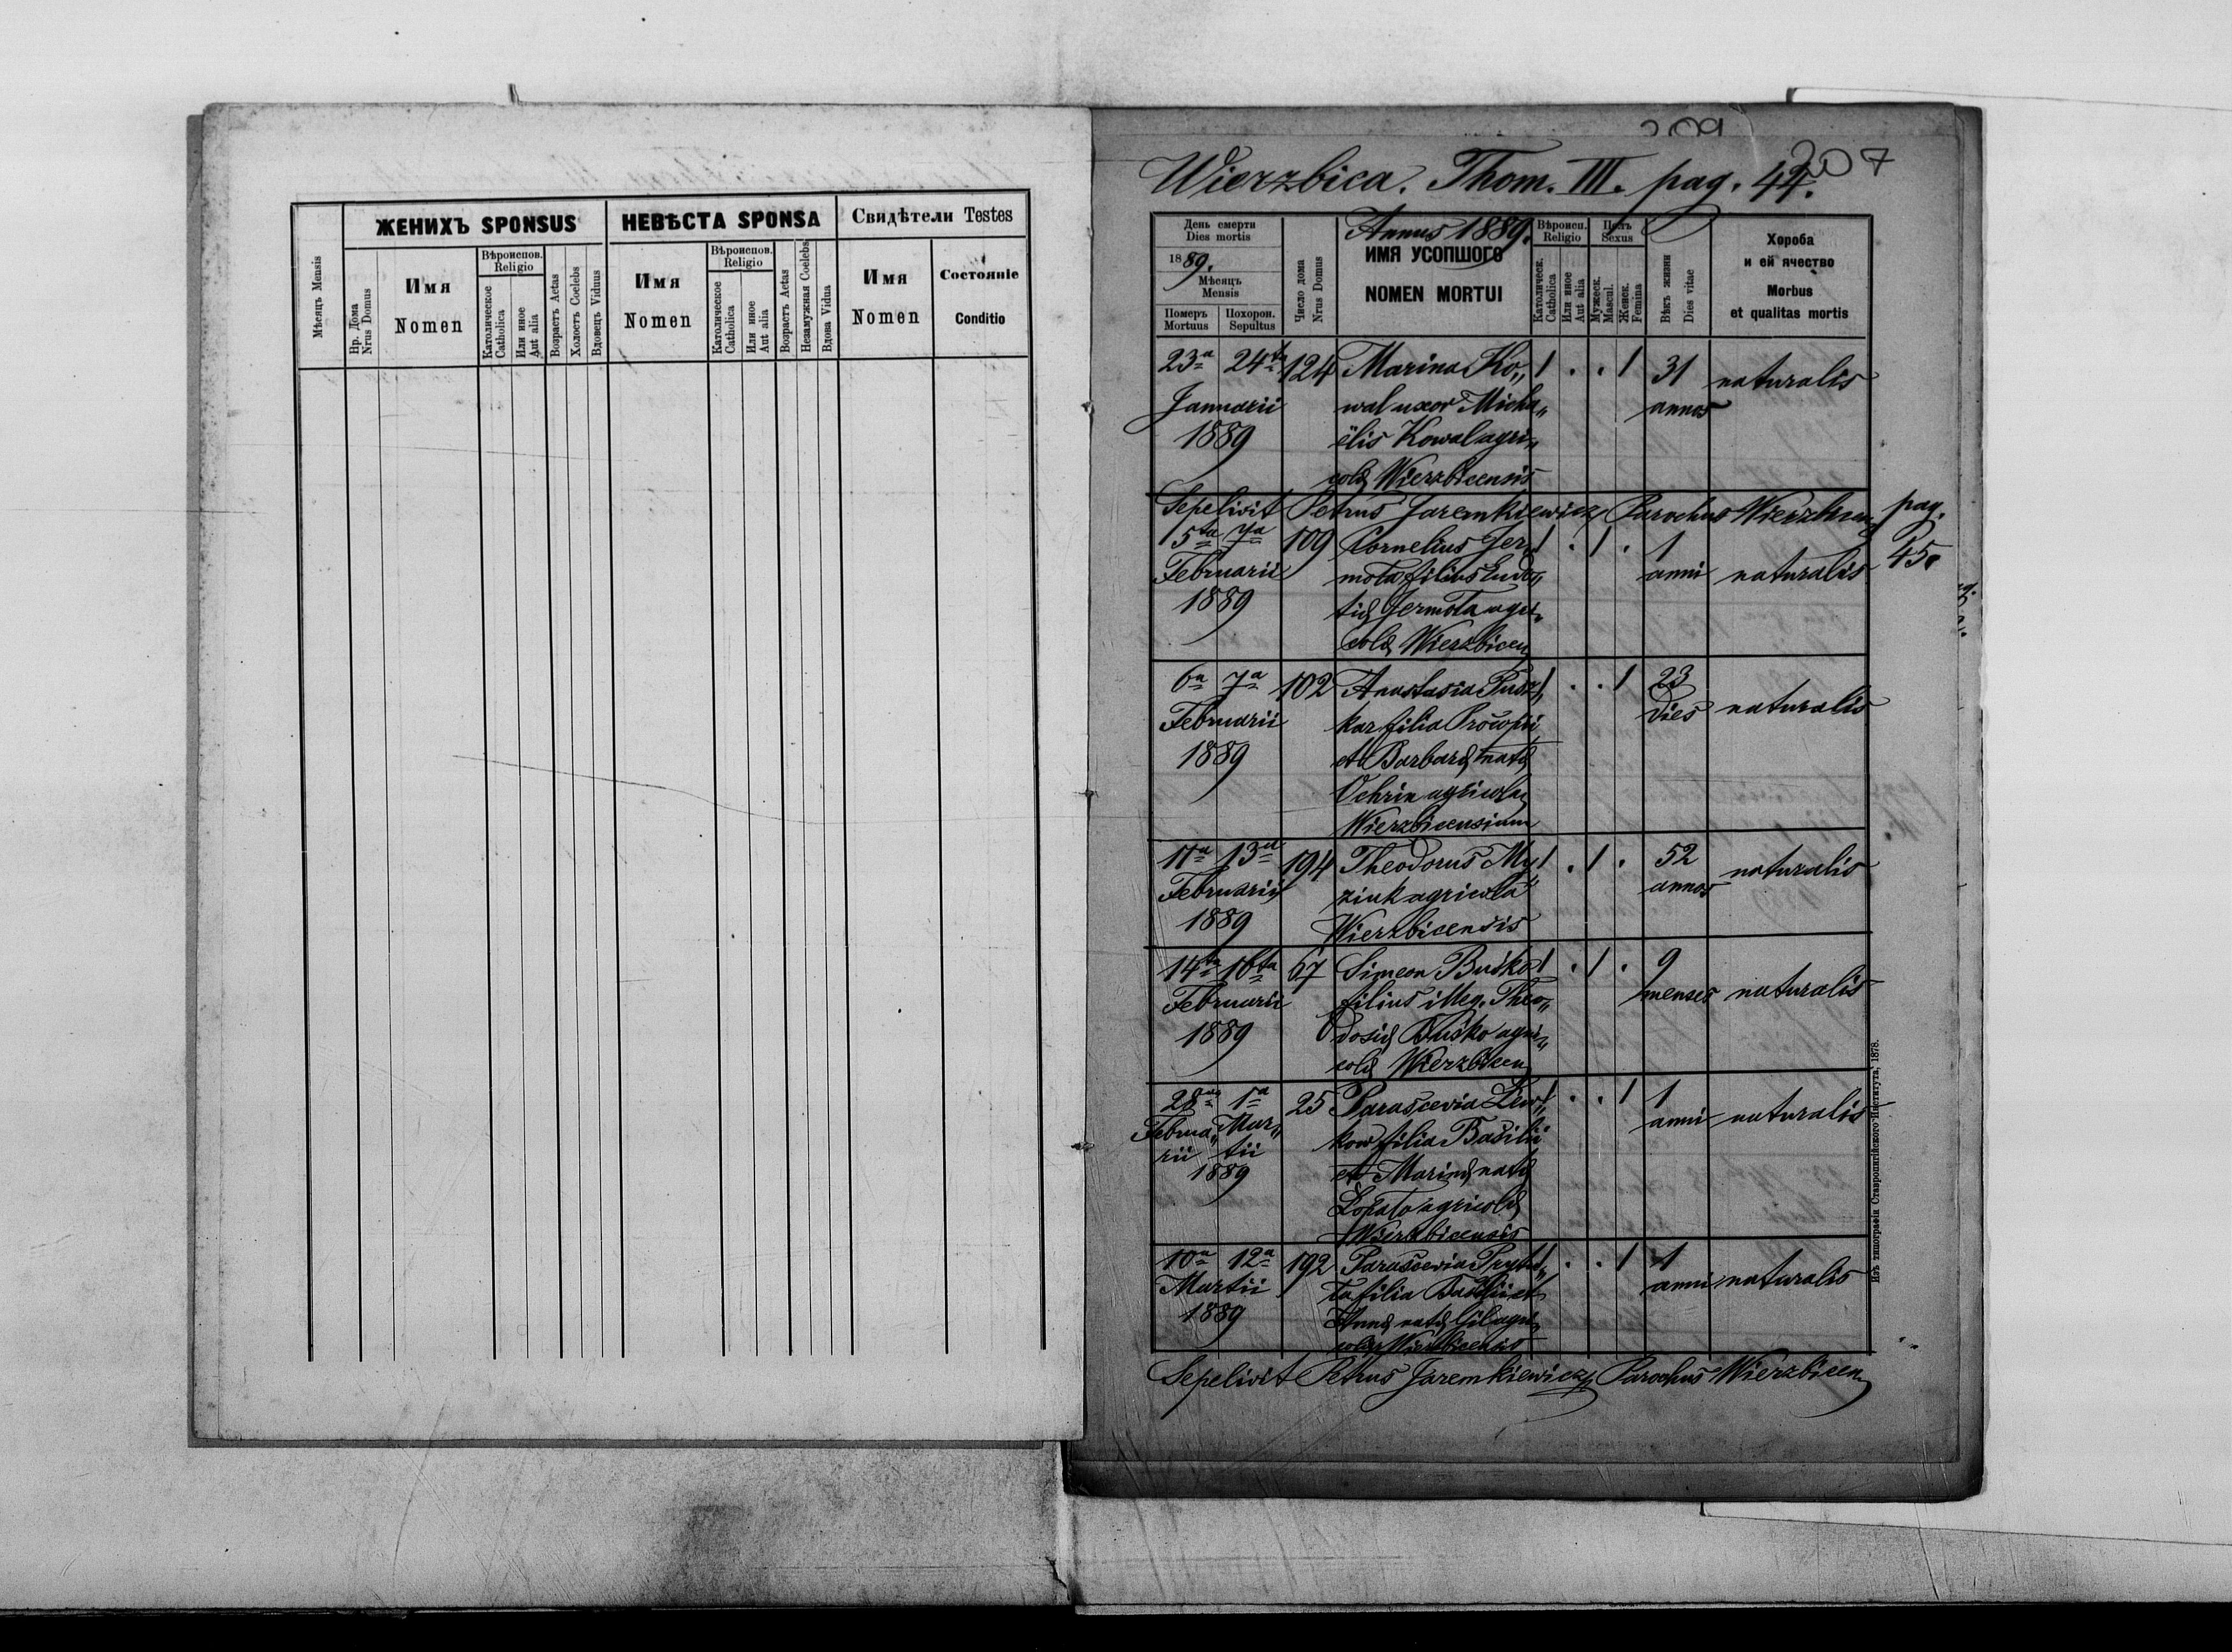 ЖЕНИХЪ SPONSUS
НЕВѢСТА SPONSA
Свидѣтели Testes
Мѣсяць Mensis
Нр. Дома
Nrus Domus
Имя
Nomen
Вѣроиспов.
Religio
Католическое
Catholica
Или иное
Aut alia
Возрастъ Aetas
Холостъ Coelebs
Вдовецъ Viduus
Имя
Nomen
Вѣроиспов.
Religio
Католическое
Catholica
Или иное
Aut alia
Возрастъ Aetas
Незамужная Coelebs
Вдова Vidua
Имя
Nomen
Состояніе
Conditio
209
207
Wierzbica. Thom. III. pag. 44.
День смерти
Dies mortis
1889.
Мѣсяць
Mensis
Померъ
Mortuus
Похорон.
Sepultus
Число дома
Nrus Domus
Annus 1889.
ИМЯ УСОПШОГО
NOMEN MORTUI
Вѣроисп.
Religio
Католическ.
Catholica
Или иное
Aut alia
Полъ
Sexus
Мужеск.
Mascul.
Женск.
Femina
Вѣкъ жизни
Dies vitae
Хороба
и ей ячество
Morbus
et qualitas mortis
23a 24ta 124 Marina Ko„ 1 . . 1 31 naturalis
Januarii wal uxor Micha„ annos
1889 ëlis Kowal agri„
colæ Wierzbicensis
Sepelivit Petrus Jaremkiewicz, Parochus Wierzbicen pag.
5ta 7a 109 Cornelius Jer„ 1 . 1 . 1 45.
Februarii mota filius anni naturalis
1889 Jermota agri„
colæ Wierzbicen
6a 7a 102 Anastasia Pusz„ 1 . . 1 23
Februarii kar filia Procopii Dies naturalis
1889 et Barbaræ natæ
Ochrin agricolæ
Wierzbicensium
11a 13a 194 Theodorus My„ 1 . 1 . 52 naturalis
Februarii ziuk agricola annos
1889 Wierzbicensis
14ta 16ta 67 Simeon Buśko 1 . 1 . 9
Februarii filius illeg. Theo„ menses naturalis
1889 dosiæ Buśko agri„
colæ Wierzbicen
28a 1a 25 Parascevia Lew„ 1 . . 1 1
Februa„ Mar„ kow filia Basilii anni naturalis
rii tii
1889 et Marinæ natæ
Łopato agricolæ
Wierzbicensis
10a 12a 192 Parascevia 1 . . 1 1
Martii ta filia Basilii et anni naturalis
1889 Annæ natæ Gil agri„
colæ Wierzbicensis
Sepelivit Petrus Jaremkiewicz, Parochus Wierzbicen
Изъ типографіи Ставропигійского Института, 1878.